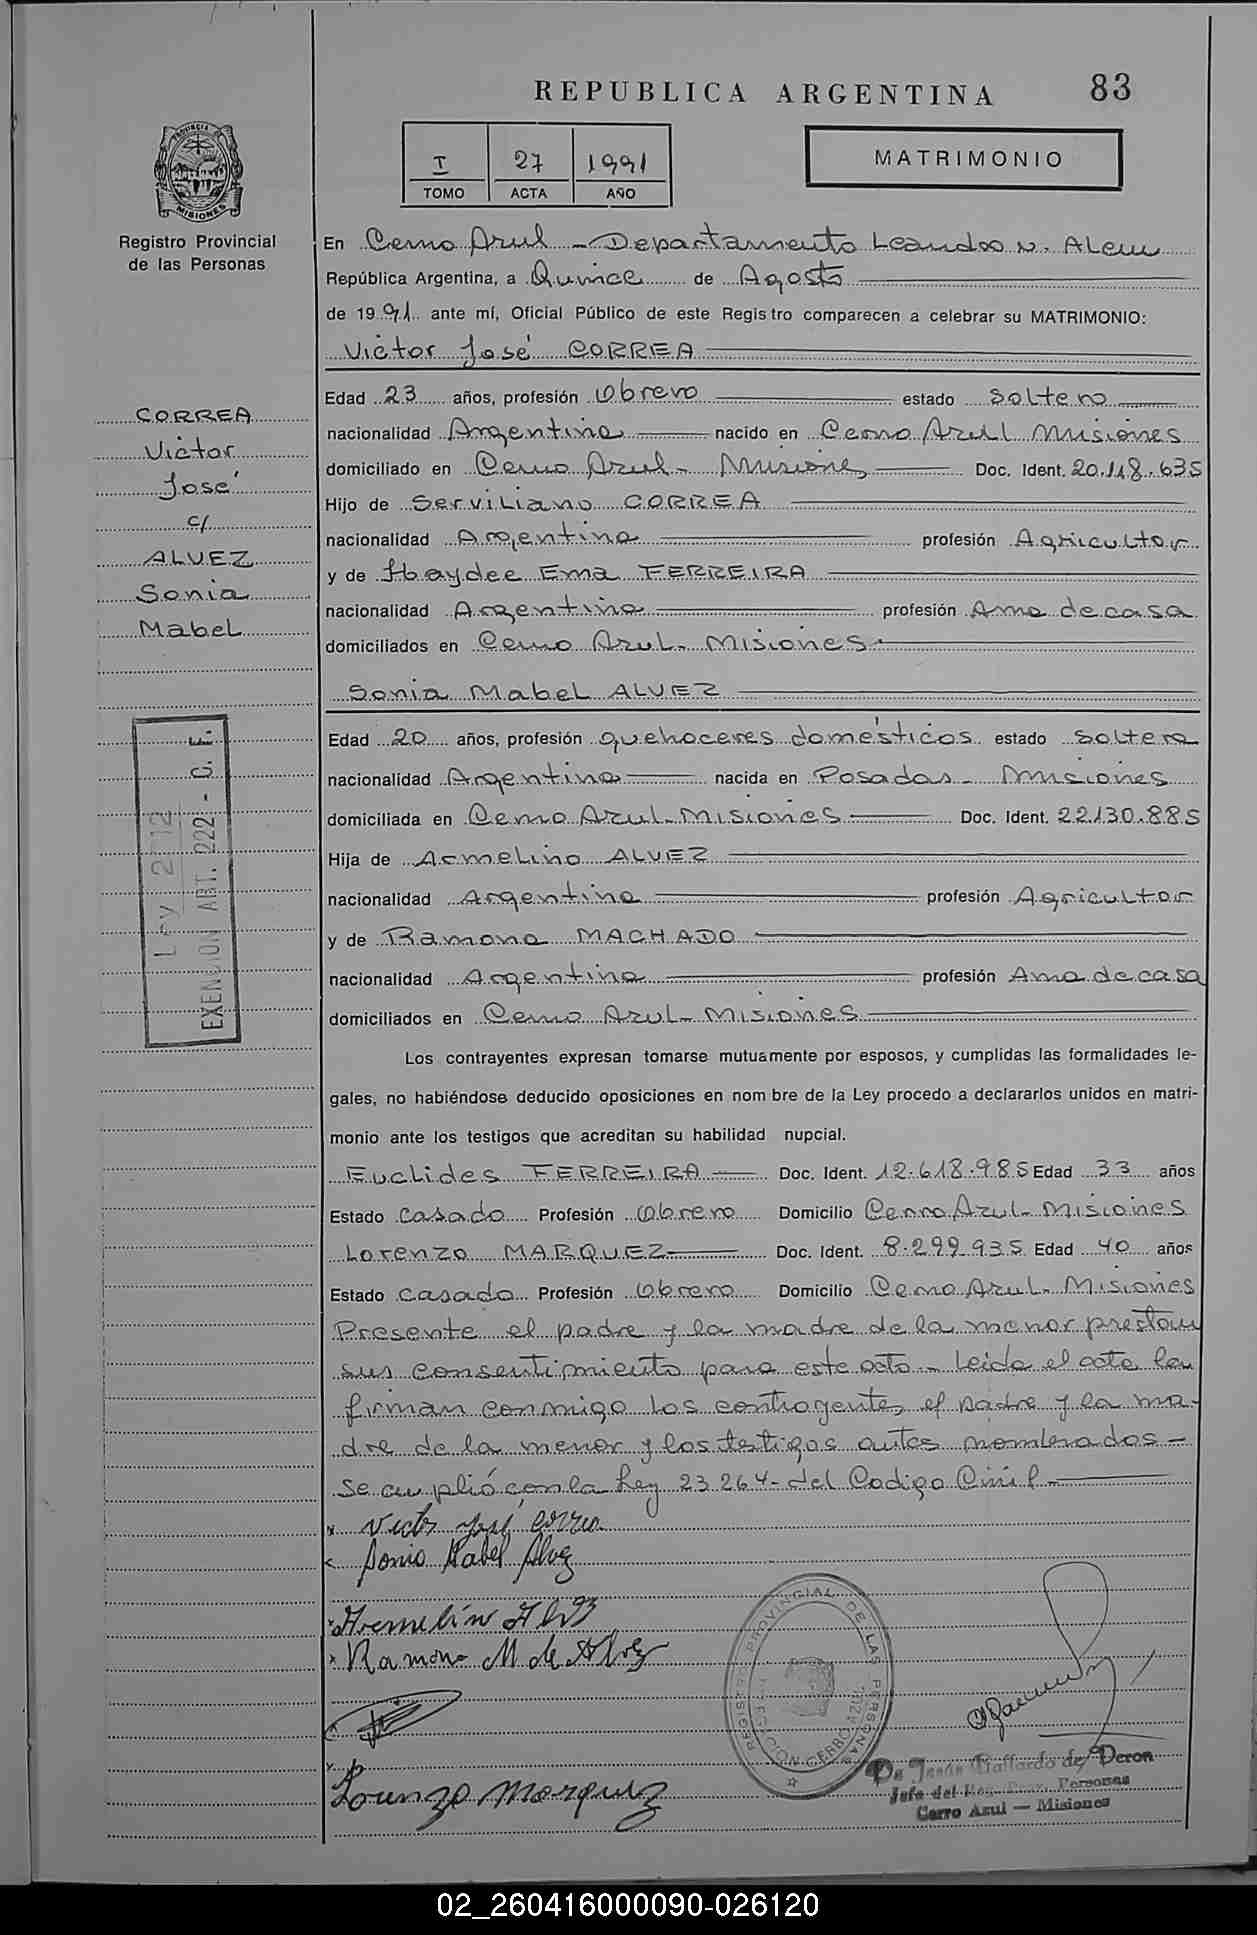 REPUBLICA ARGENTINA
83
I 27 1991
TOMO ACTA AÑO
MATRIMONIO
PROVINCIA DE MISIONES
Registro Provincial
de las Personas
En Cerro Azul - Departamento Leandro N. Alem
República Argentina, a Quince de Agosto
de 1991 ante mí, Oficial Público de este Registro comparecen a celebrar su MATRIMONIO:
Victor José CORREA
CORREA
Victor
José
c/
ALVEZ
Sonia
Mabel
Edad 23 años, profesión Obrero estado soltero
nacionalidad Argentina nacido en Cerro Azul Misiones
domiciliado en Cerro Azul - Misiones Doc. Ident. 20.118.635
Hijo de Serviliano CORREA
nacionalidad Argentina profesión Agricultor
y de Haydee Ema FERREIRA
nacionalidad Argentina profesión Ama de casa
domiciliados en Cerro Azul - Misiones.
Sonia Mabel ALVEZ
Edad 20 años, profesión quehaceres domésticos estado soltera
nacionalidad Argentina nacida en Posadas - Misiones
domiciliada en Cerro Azul - Misiones Doc. Ident. 22.130.885
Hija de Armelino ALVEZ
nacionalidad Argentina profesión Agricultor
y de Ramona MACHADO
nacionalidad Argentina profesión Ama de casa
domiciliados en Cerro Azul - Misiones
EXENCION ART. 222 - C. F.
Los contrayentes expresan tomarse mutuamente por esposos, y cumplidas las formalidades le-
gales, no habiéndose deducido oposiciones en nombre de la Ley procedo a declararlos unidos en matri-
monio ante los testigos que acreditan su habilidad nupcial.
Euclides FERREIRA Doc. Ident. 12.618.985 Edad 33 años
Estado casado Profesión Obrero Domicilio Cerro Azul - Misiones
Lorenzo MARQUEZ Doc. Ident. 8.299.935 Edad 40 años
Estado casado Profesión Obrero Domicilio Cerro Azul - Misiones
Presente el padre y la madre de la menor prestan
sus consentimiento para este acto - Leida el acta la
firman conmigo los contrayentes, el padre y la ma-
dre de la menor y los testigos antes nombrados -
se cumplió con la Ley 23264 - del Codigo Civil -
Victor José Correa
Sonia Mabel Alvez
Ramona M de Alvez
Lorenzo Marquez
REGISTRO PROVINCIAL DE LAS PERSONAS
CERRO AZUL
Gallardo de Deron
Jefe del Reg. Prov. Personas
Cerro Azul — Misiones
02_260416000090-026120